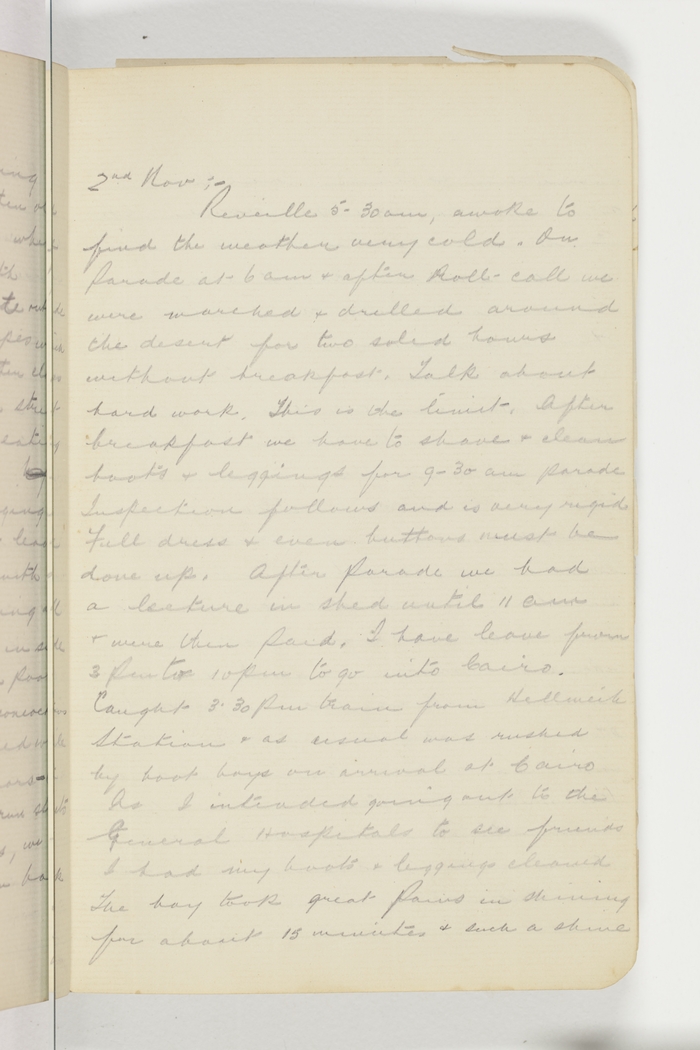 2nd Nov :-
Reveille 5-30am, awoke to
find the weather very cold. On
Parade at 6 am & after Roll-call we
were marched & drilled around
the desert for two solid hours
without breakfast. Talk about
hard work. This is the limit. After
breakfast we have to shave & clean
boots & leggings for 9-30 am parade
Inspection follows and is very rigid
Full dress & even buttons must be
done up. After Parade we had
a lecture in shed until 11 am
& were then paid. I have leave from
3 Pm to 10 Pm to go into Cairo.
Caught 3-30 Pm train from Hellmeih
Station & as usual was rushed
by boot boys on arrival at Cairo
As I intended going out to the
General Hospitals to see friends
I had my boots & leggings cleaned
The boy took great Pains in shining
for about 15 minutes & such a shine